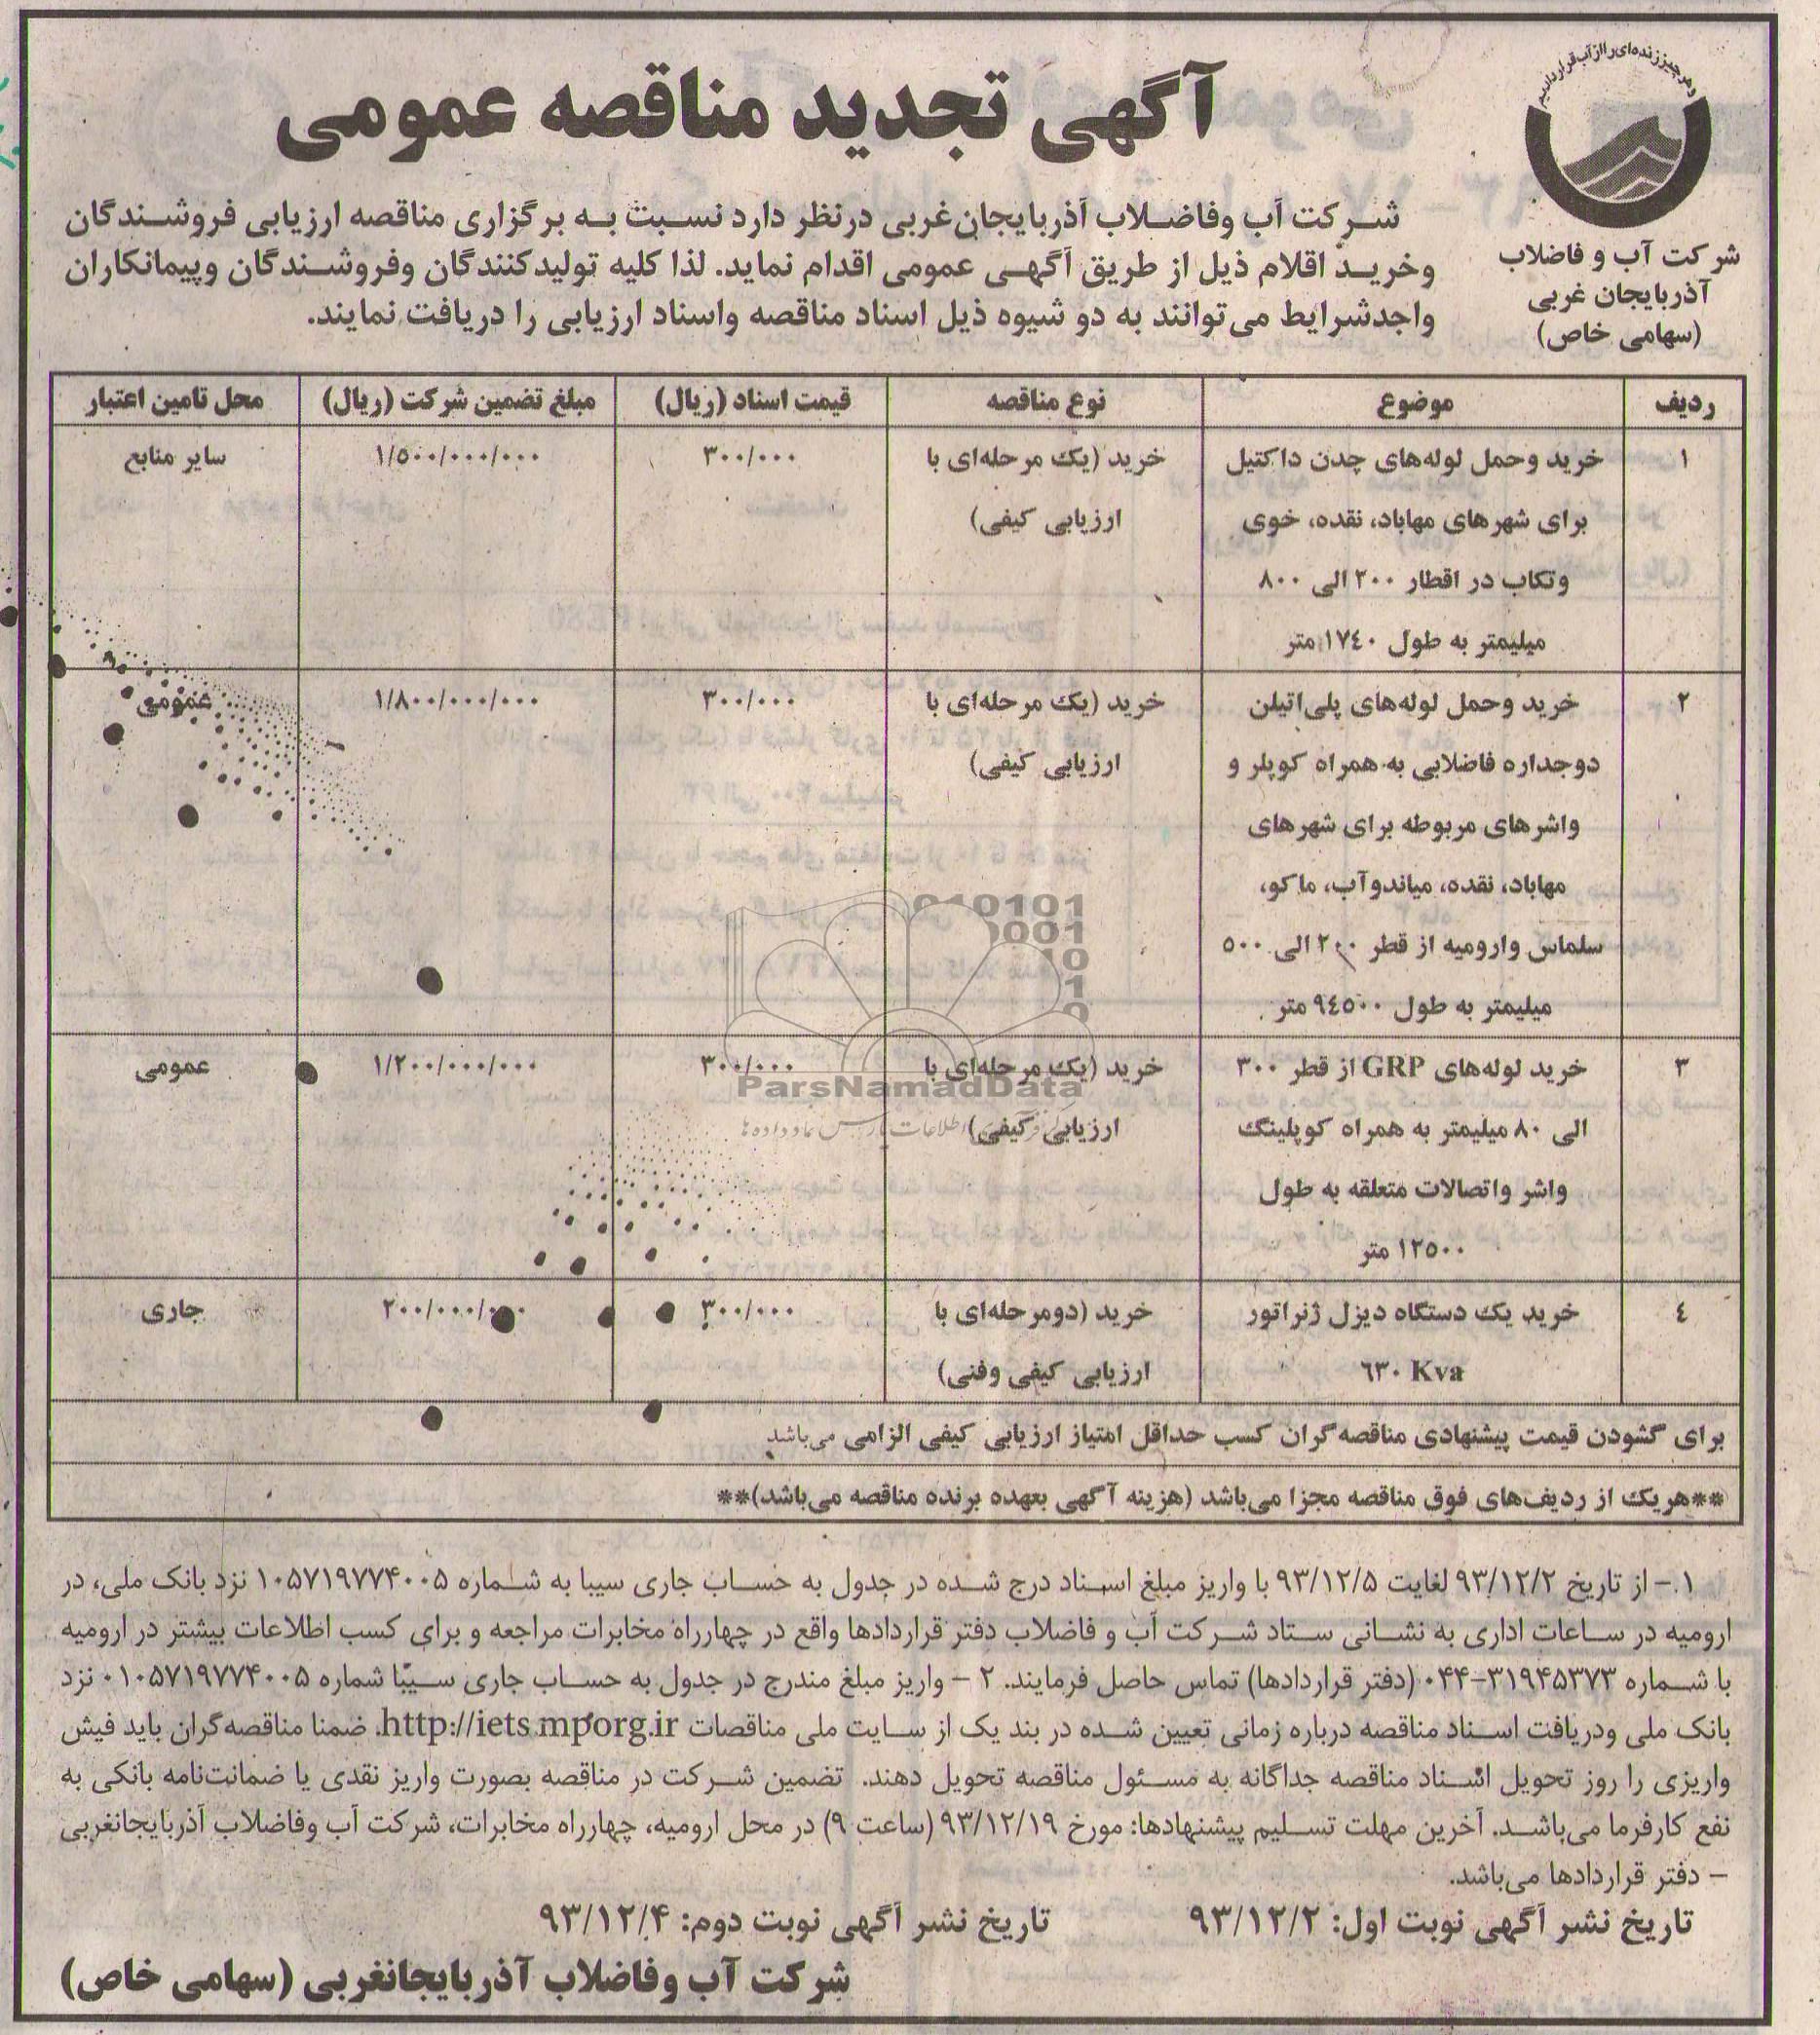 وهر چیز زنده‌ای را از آب قرار دادیم
آگهی تجدید مناقصه عمومی
شرکت آب و فاضلاب
آذربایجان غربی
(سهامی خاص)
شرکت آب وفاضلاب آذربایجان‌غربی درنظر دارد نسبت به برگزاری مناقصه ارزیابی فروشندگان
وخرید اقلام ذیل از طریق آگهی عمومی اقدام نماید. لذا کلیه تولیدکنندگان وفروشندگان وپیمانکاران
واجدشرایط می‌توانند به دو شیوه ذیل اسناد مناقصه واسناد ارزیابی را دریافت نمایند.
ردیف موضوع نوع مناقصه قیمت اسناد (ریال) مبلغ تضمین شرکت (ریال) محل تامین اعتبار
۱ خرید وحمل لوله‌های چدن داکتیل خرید (یک مرحله‌ای با ۳۰۰/۰۰۰ ۱/۵۰۰/۰۰۰/۰۰۰ سایر منابع
برای شهرهای مهاباد، نقده، خوی ارزیابی کیفی)
وتکاب در اقطار ۲۰۰ الی ۸۰۰
میلیمتر به طول ۱۷٤۰ متر
۲ خرید وحمل لوله‌های پلی‌اتیلن خرید (یک مرحله‌ای با ۳۰۰/۰۰۰ ۱/۸۰۰/۰۰۰/۰۰۰ عمومی
دوجداره فاضلابی به همراه کوپلر و ارزیابی کیفی)
واشرهای مربوطه برای شهرهای
مهاباد، نقده، میاندوآب، ماکو،
سلماس وارومیه از قطر ۲۰۰ الی ۵۰۰
میلیمتر به طول ۹٤۵۰۰ متر
۳ خرید لوله‌های GRP از قطر ۳۰۰ خرید (یک مرحله‌ای با ۳۰۰/۰۰۰ ۱/۲۰۰/۰۰۰/۰۰۰ عمومی
الی ۸۰ میلیمتر به همراه کوپلینگ ارزیابی کیفی)
واشر واتصالات متعلقه به طول
۱۲۵۰۰ متر
٤ خرید یک دستگاه دیزل ژنراتور خرید (دومرحله‌ای با ۳۰۰/۰۰۰ ۲۰۰/۰۰۰/۰۰۰ جاری
٦۳۰ Kva ارزیابی کیفی وفنی)
برای گشودن قیمت پیشنهادی مناقصه‌گران کسب حداقل امتیاز ارزیابی کیفی الزامی می‌باشد
**هریک از ردیف‌های فوق مناقصه مجزا می‌باشد (هزینه آگهی بعهده برنده مناقصه می‌باشد)**
010101
0001
10
1
0
ParsNamadData
۱- از تاریخ ۹۳/۱۲/۲ لغایت ۹۳/۱۲/۵ با واریز مبلغ اسناد درج شده در جدول به حساب جاری سیبا به شماره ۱۰۵۷۱۹۷۷۴۰۰۵ نزد بانک ملی، در
ارومیه در ساعات اداری به نشانی ستاد شرکت آب و فاضلاب دفتر قراردادها واقع در چهارراه مخابرات مراجعه و برای کسب اطلاعات بیشتر در ارومیه
با شماره ۳۱۹۴۵۳۷۳-۰۴۴ (دفتر قراردادها) تماس حاصل فرمایند. ۲ - واریز مبلغ مندرج در جدول به حساب جاری سیبا شماره ۰۱۰۵۷۱۹۷۷۴۰۰۵ نزد
بانک ملی ودریافت اسناد مناقصه درباره زمانی تعیین شده در بند یک از سایت ملی مناقصات http://iets.mporg.ir. ضمنا مناقصه‌گران باید فیش
واریزی را روز تحویل اسناد مناقصه جداگانه به مسئول مناقصه تحویل دهند. تضمین شرکت در مناقصه بصورت واریز نقدی یا ضمانت‌نامه بانکی به
نفع کارفرما می‌باشد. آخرین مهلت تسلیم پیشنهادها: مورخ ۹۳/۱۲/۱۹ (ساعت ۹) در محل ارومیه، چهارراه مخابرات، شرکت آب وفاضلاب آذربایجانغربی
- دفتر قراردادها می‌باشد.
تاریخ نشر آگهی نوبت اول: ۹۳/۱۲/۲ تاریخ نشر آگهی نوبت دوم: ۹۳/۱۲/۴
شرکت آب وفاضلاب آذربایجانغربی (سهامی خاص)